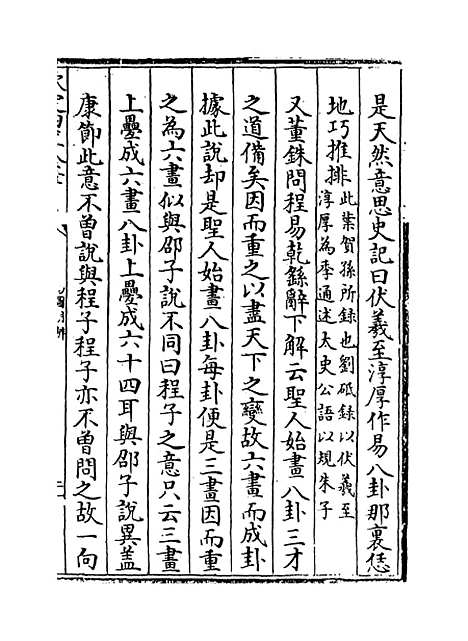 是天然意思史記曰伏羲至淳厚作易八卦那裏恁
地巧推排此葉賀孫所録也劉砥録以伏羲至
淳厚為季通述太史公語以規朱子
又董銖問程易乾繇辭下解云聖人始畫八卦三才
之道備矣因而重之以盡天下之變故六畫而成卦
據此說却是聖人始畫八卦每卦便是三畫因而重
之為六畫似與邵子說不同曰程子之意只云三畫
上疊成六畫八卦上疊成六十四耳與邵子說異蓋
康節此意不曾說與程子程子亦不曾問之故一向